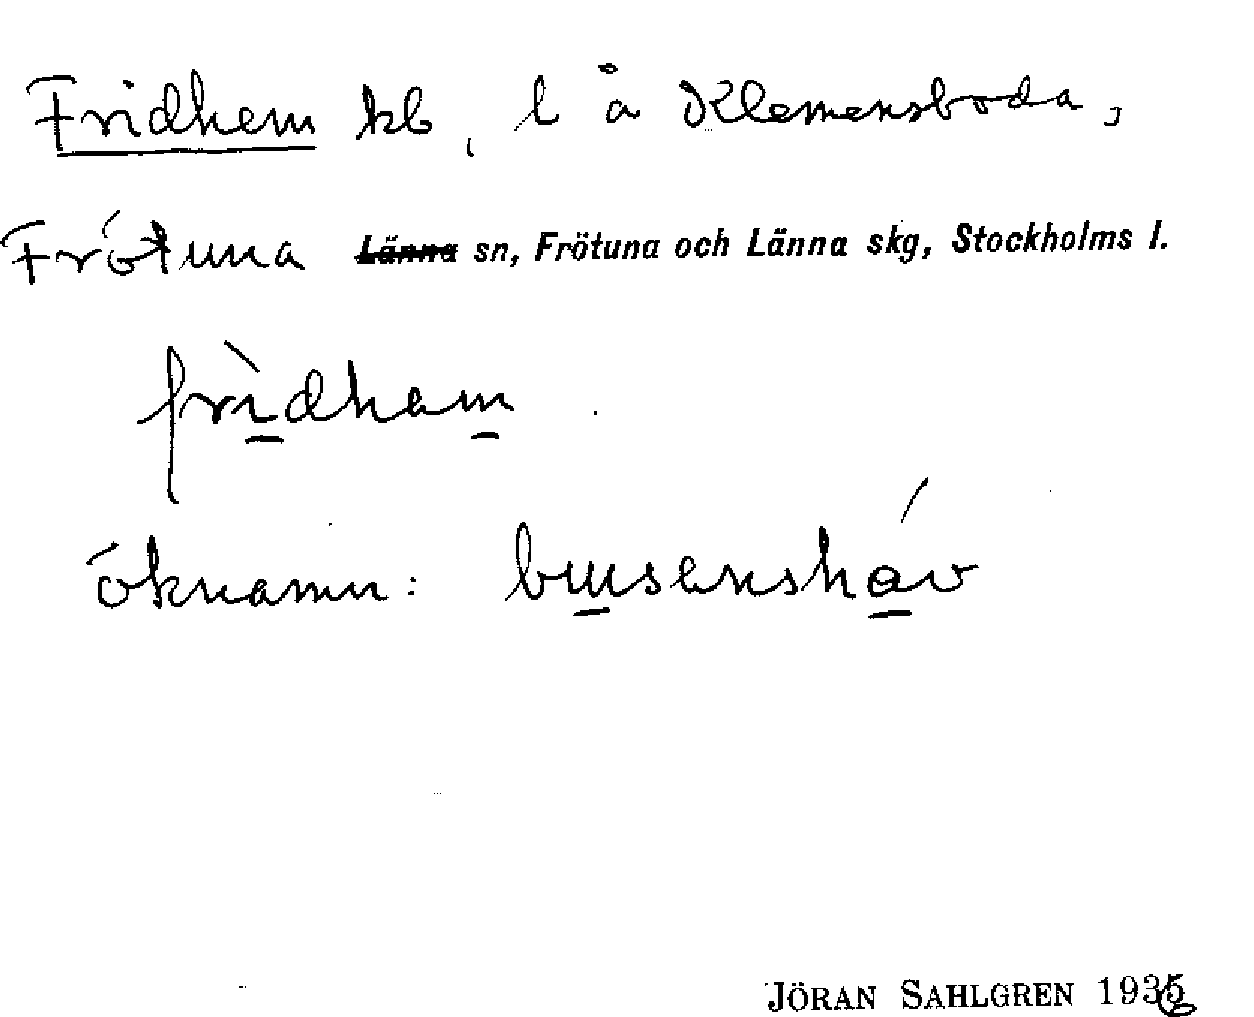 Fridhem kb, l å Klemensboda,
Frötuna Länna sn, Frötuna och Länna skg, Stockholms l.
frìdham
öknamn: busensháv
JÖRAN SAHLGREN 1936